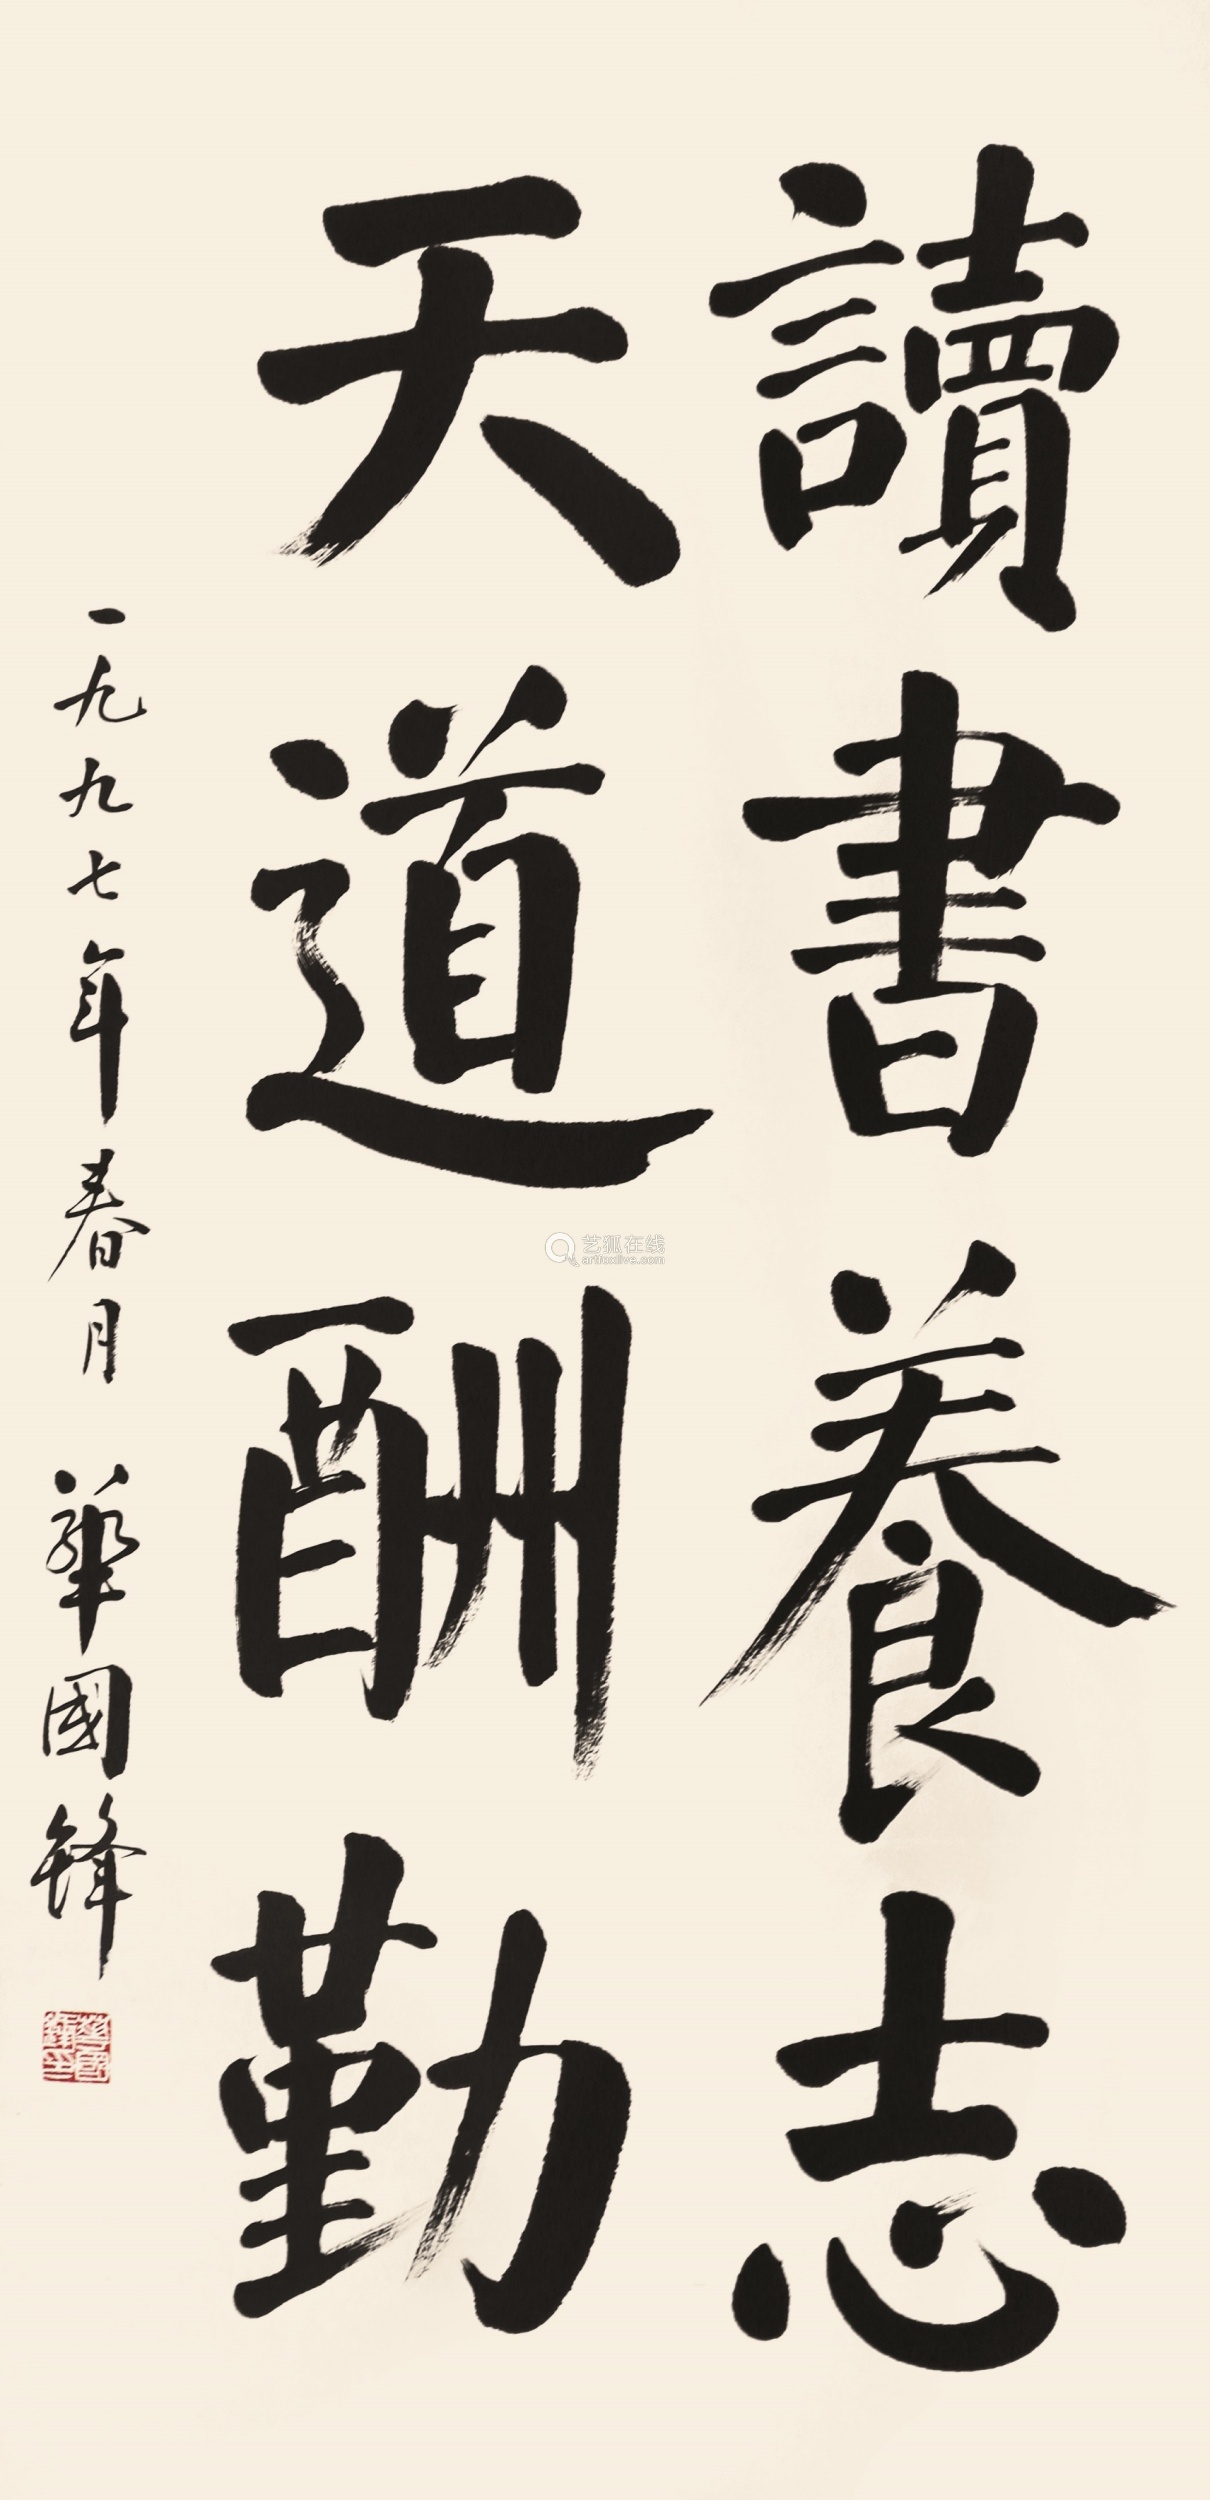 讀書養志
天道酬勤
一九九七年春月 華國鋒
艺狐在线
artfoxlive.com